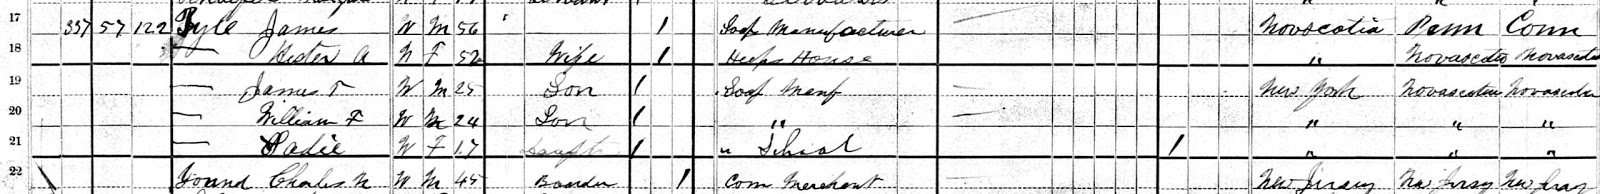 17 337 57 122 Pyle James W M 56 1 Soap Manufacturer Novascotia Penn Conn
18 — Hester A W F 52 Wife 1 Keeps House " Novascotia Novascotia
19 — James T W M 25 Son 1 Soap Manf New York Novascotia Novascotia
20 — William F W M 24 Son 1 " " " "
21 — Sadie W F 17 Daught 1 " School 1 " " "
22 Charles N W M 45 Boarder 1 Com Merchant New Jersey New Jersey New Jersey